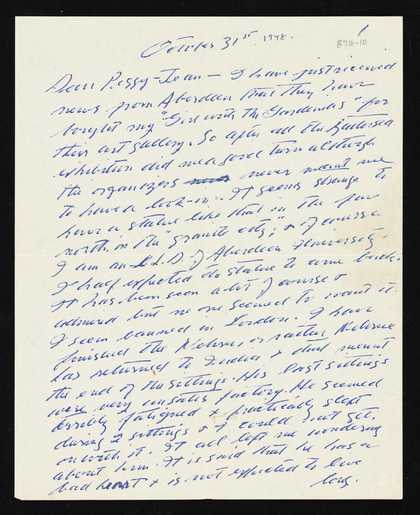 1
October 31st. 1948.
Dear Peggy-Jean — I have just received
news from Aberdeen that they have
bought my "Girl with the Gardenias" for
their art gallery. So after all the Battersea
exhibition did me a good turn although
the organizers never meant me
to have a look-in. It seems strange to
have a statue like that in the far
north, in the "granite city"; & of course
I am an LL.D. of Aberdeen University.
I had expected the statue to come back.
It has been seen a lot of course &
admired but no one seemed to want it.
I seem banned in London. I have
finished the Nehru, or rather Nehru
has returned to India & that meant
the end of the sittings. His last sittings
were very unsatisfactory. He seemed
terribly fatigued & practically slept
during 2 sittings & I could not get
on with it. It all left me wondering
about him. It is said that he has a
bad heart & is not expected to live
long.